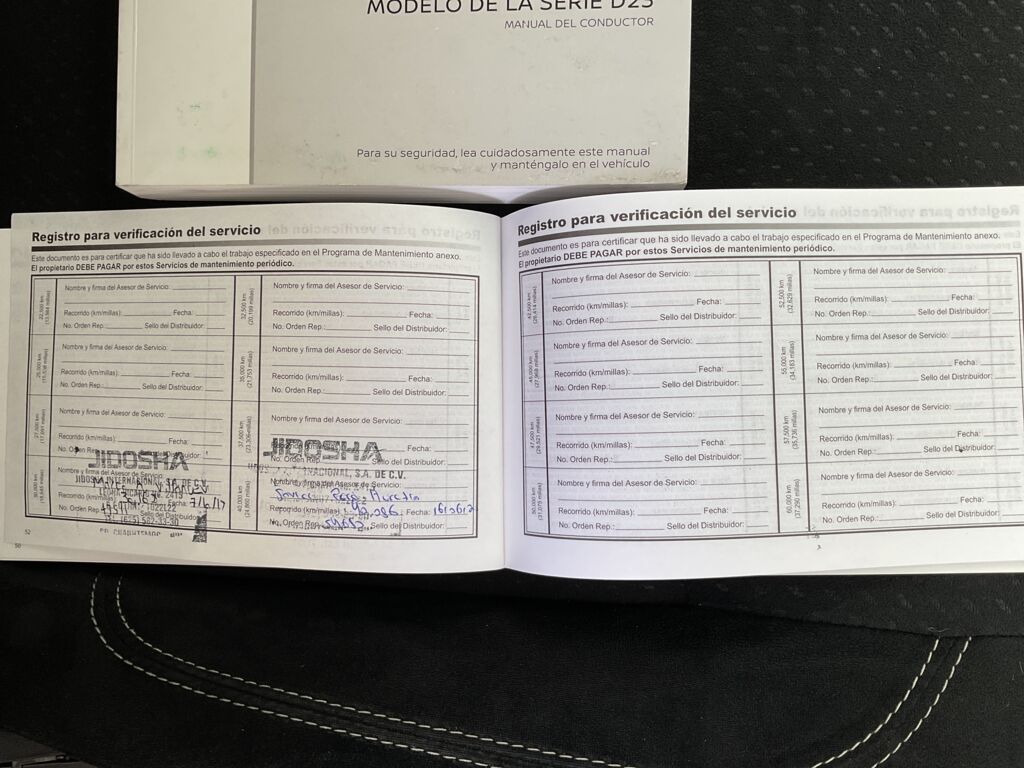 MODELO DE LA SERIE D23
MANUAL DEL CONDUCTOR
Para su seguridad, lea cuidadosamente este manual
y manténgalo en el vehículo
Registro para verificación del servicio
Este documento es para certificar que ha sido llevado a cabo el trabajo especificado en el Programa de Mantenimiento anexo.
El propietario DEBE PAGAR por estos Servicios de mantenimiento periódico.
22,500 km
Nombre y firma del Asesor de Servicio:
Recorrido (km/millas): Fecha:
No. Orden Rep.: Sello del Distribuidor:
32,500 km
(20,199 millas)
Nombre y firma del Asesor de Servicio:
Recorrido (km/millas): Fecha:
No. Orden Rep.: Sello del Distribuidor:
25,000 km
Nombre y firma del Asesor de Servicio:
Recorrido (km/millas): Fecha:
No. Orden Rep.: Sello del Distribuidor:
35,000 km
(21,753 millas)
Nombre y firma del Asesor de Servicio:
Recorrido (km/millas): Fecha:
No. Orden Rep.: Sello del Distribuidor:
27,500 km
Nombre y firma del Asesor de Servicio:
Recorrido (km/millas): Fecha:
JIDOSHA
37,500 km
(23,306 millas)
Nombre y firma del Asesor de Servicio:
Fecha:
JIDOSHA
No. Orden Rep.: Sello del Distribuidor:
S.A. DE C.V.
30,000 km
Nombre y firma del Asesor de Servicio:
JIDOSHA INTERNACIONAL, S.A. DE C.V.
Recorrido (km/millas): Fecha 7/6/17
No. Orden Rep.:
Sello del Distribuidor:
40,000 km
(24,860 millas)
Nombre y firma del Asesor de Servicio:
Recorrido (km/millas): Fecha:
No. Orden Rep. Sello del Distribuidor:
52
50
Registro para verificación del servicio
Este documento es para certificar que ha sido llevado a cabo el trabajo especificado en el Programa de Mantenimiento anexo.
El propietario DEBE PAGAR por estos Servicios de mantenimiento periódico.
42,500 km
(26,414 millas)
Nombre y firma del Asesor de Servicio:
Recorrido (km/millas): Fecha:
No. Orden Rep.: Sello del Distribuidor:
52,500 km
(32,629 millas)
Nombre y firma del Asesor de Servicio:
Recorrido (km/millas): Fecha:
No. Orden Rep.: Sello del Distribuidor:
45,000 km
(27,968 millas)
Nombre y firma del Asesor de Servicio:
Recorrido (km/millas): Fecha:
No. Orden Rep.: Sello del Distribuidor:
55,000 km
(34,183 millas)
Nombre y firma del Asesor de Servicio:
Recorrido (km/millas): Fecha:
No. Orden Rep.: Sello del Distribuidor:
47,500 km
(29,521 millas)
Nombre y firma del Asesor de Servicio:
Recorrido (km/millas): Fecha:
No. Orden Rep.: Sello del Distribuidor:
57,500 km
(35,736 millas)
Nombre y firma del Asesor de Servicio:
Recorrido (km/millas): Fecha:
No. Orden Rep.: Sello del Distribuidor:
50,000 km
(31,075 millas)
Nombre y firma del Asesor de Servicio:
Recorrido (km/millas): Fecha:
No. Orden Rep.: Sello del Distribuidor:
60,000 km
(37,290 millas)
Nombre y firma del Asesor de Servicio:
Recorrido (km/millas): Fecha:
No. Orden Rep.: Sello del Distribuidor: